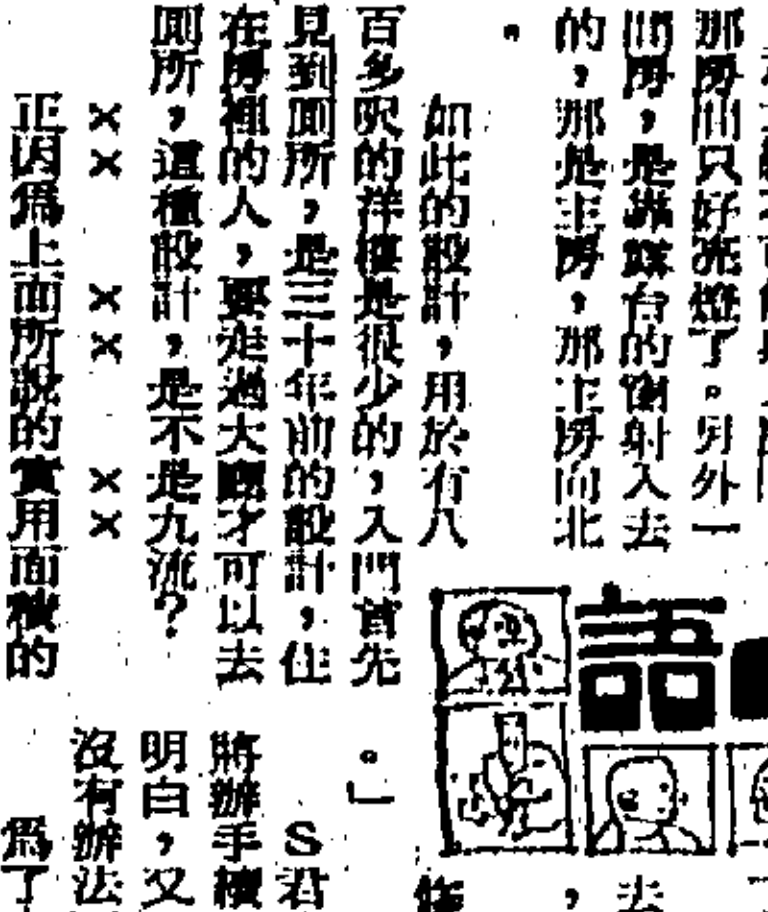 那房間只好亮燈了。另外一
間房，是靠騎台的側射入去
的，那是主房，那主房向北
。
如此的設計，用於有八
百多呎的洋樓是很少的，入門首先
見到厠所，是三十年前的設計，住
在房裡的人，要走過大廳才可以去
厠所，這種設計，是不是九流？
×× ×× ××
正因爲上面所說的實用面積的
語
去
，
。」
S君
將辦手續
明白，又
沒有辦法
爲了